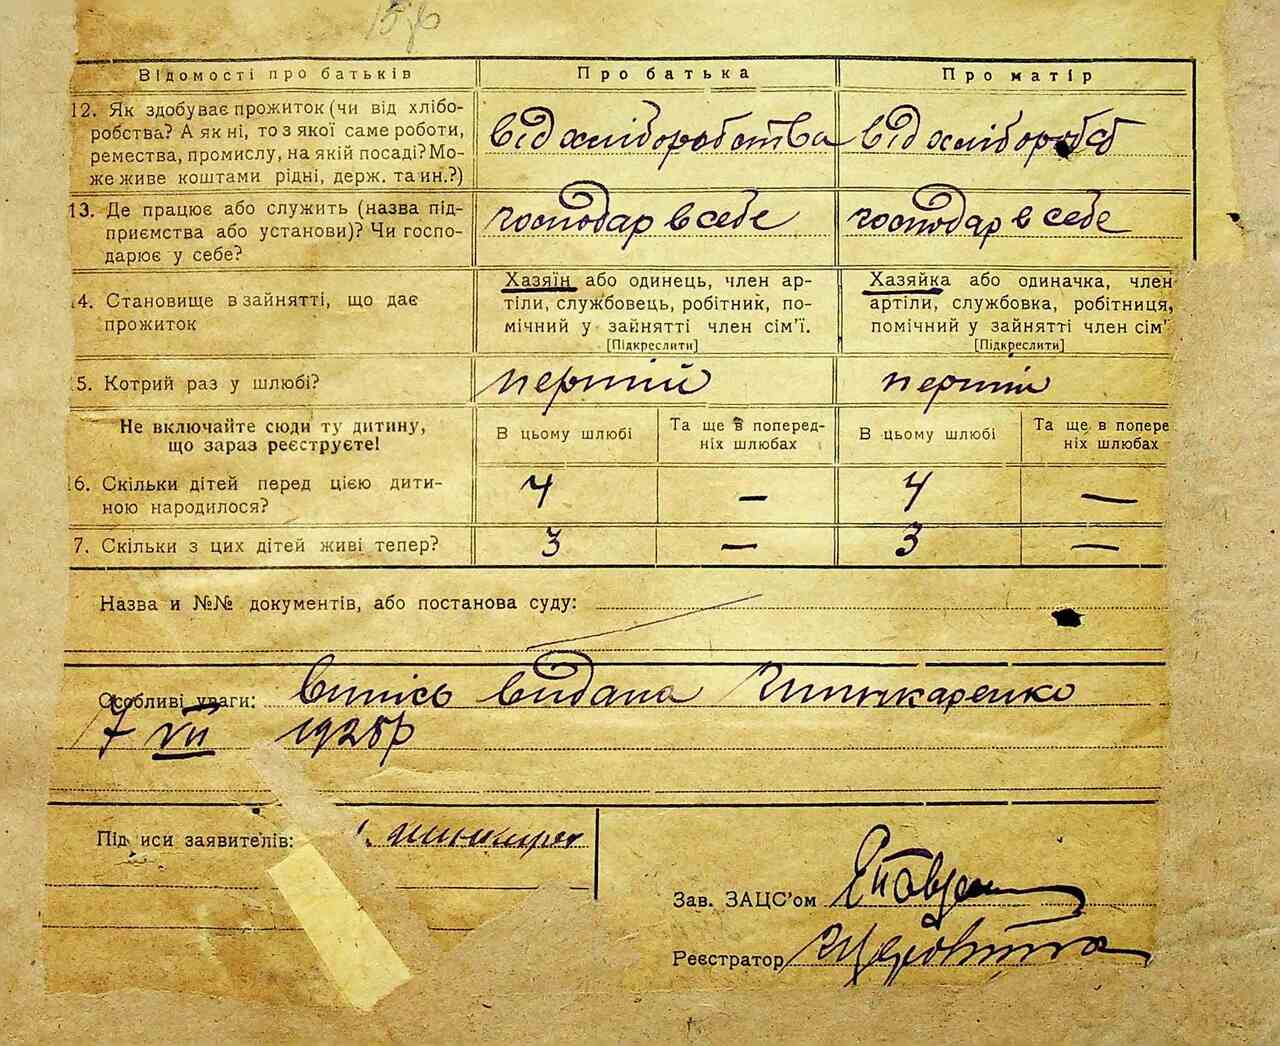 Відомості про батьків
Про батька
Про матір
12. Як здобуває прожиток (чи від хлібо-
робства? А як ні, то з якої саме роботи,
ремества, промислу, на якій посаді? Мо-
же живе коштами рідні, держ. та ин.?)
від хліборобства
від хлібороб
13. Де працює або служить (назва під-
приємства або установи)? Чи госпо-
дарює у себе?
господар в себе
господар в себе
4. Становище в зайнятті, що дає
прожиток
Хазяїн або одинець, член ар-
тіли, службовець, робітник, по-
мічний у зайнятті член сім'ї.
[Підкреслити]
Хазяйка або одиначка, член
артіли, службовка, робітниця,
помічний у зайнятті член сім'
[Підкреслити]
5. Котрий раз у шлюбі?
перший
перший
Не включайте сюди ту дитину,
що зараз реєструєте!
В цьому шлюбі
Та ще в поперед-
ніх шлюбах
В цьому шлюбі
Та ще в попере
ніх шлюбах
6. Скільки дітей перед цією дити-
ною народилося?
4 — 4 —
7. Скільки з цих дітей живі тепер?
3 — 3 —
Назва и №№ документів, або постанова суду:
Особливі уваги: випісь видана Шинкаренко
7 VII 1925 р
Під иси заявителів:
Зав. ЗАЦС'ом
Реєстратор